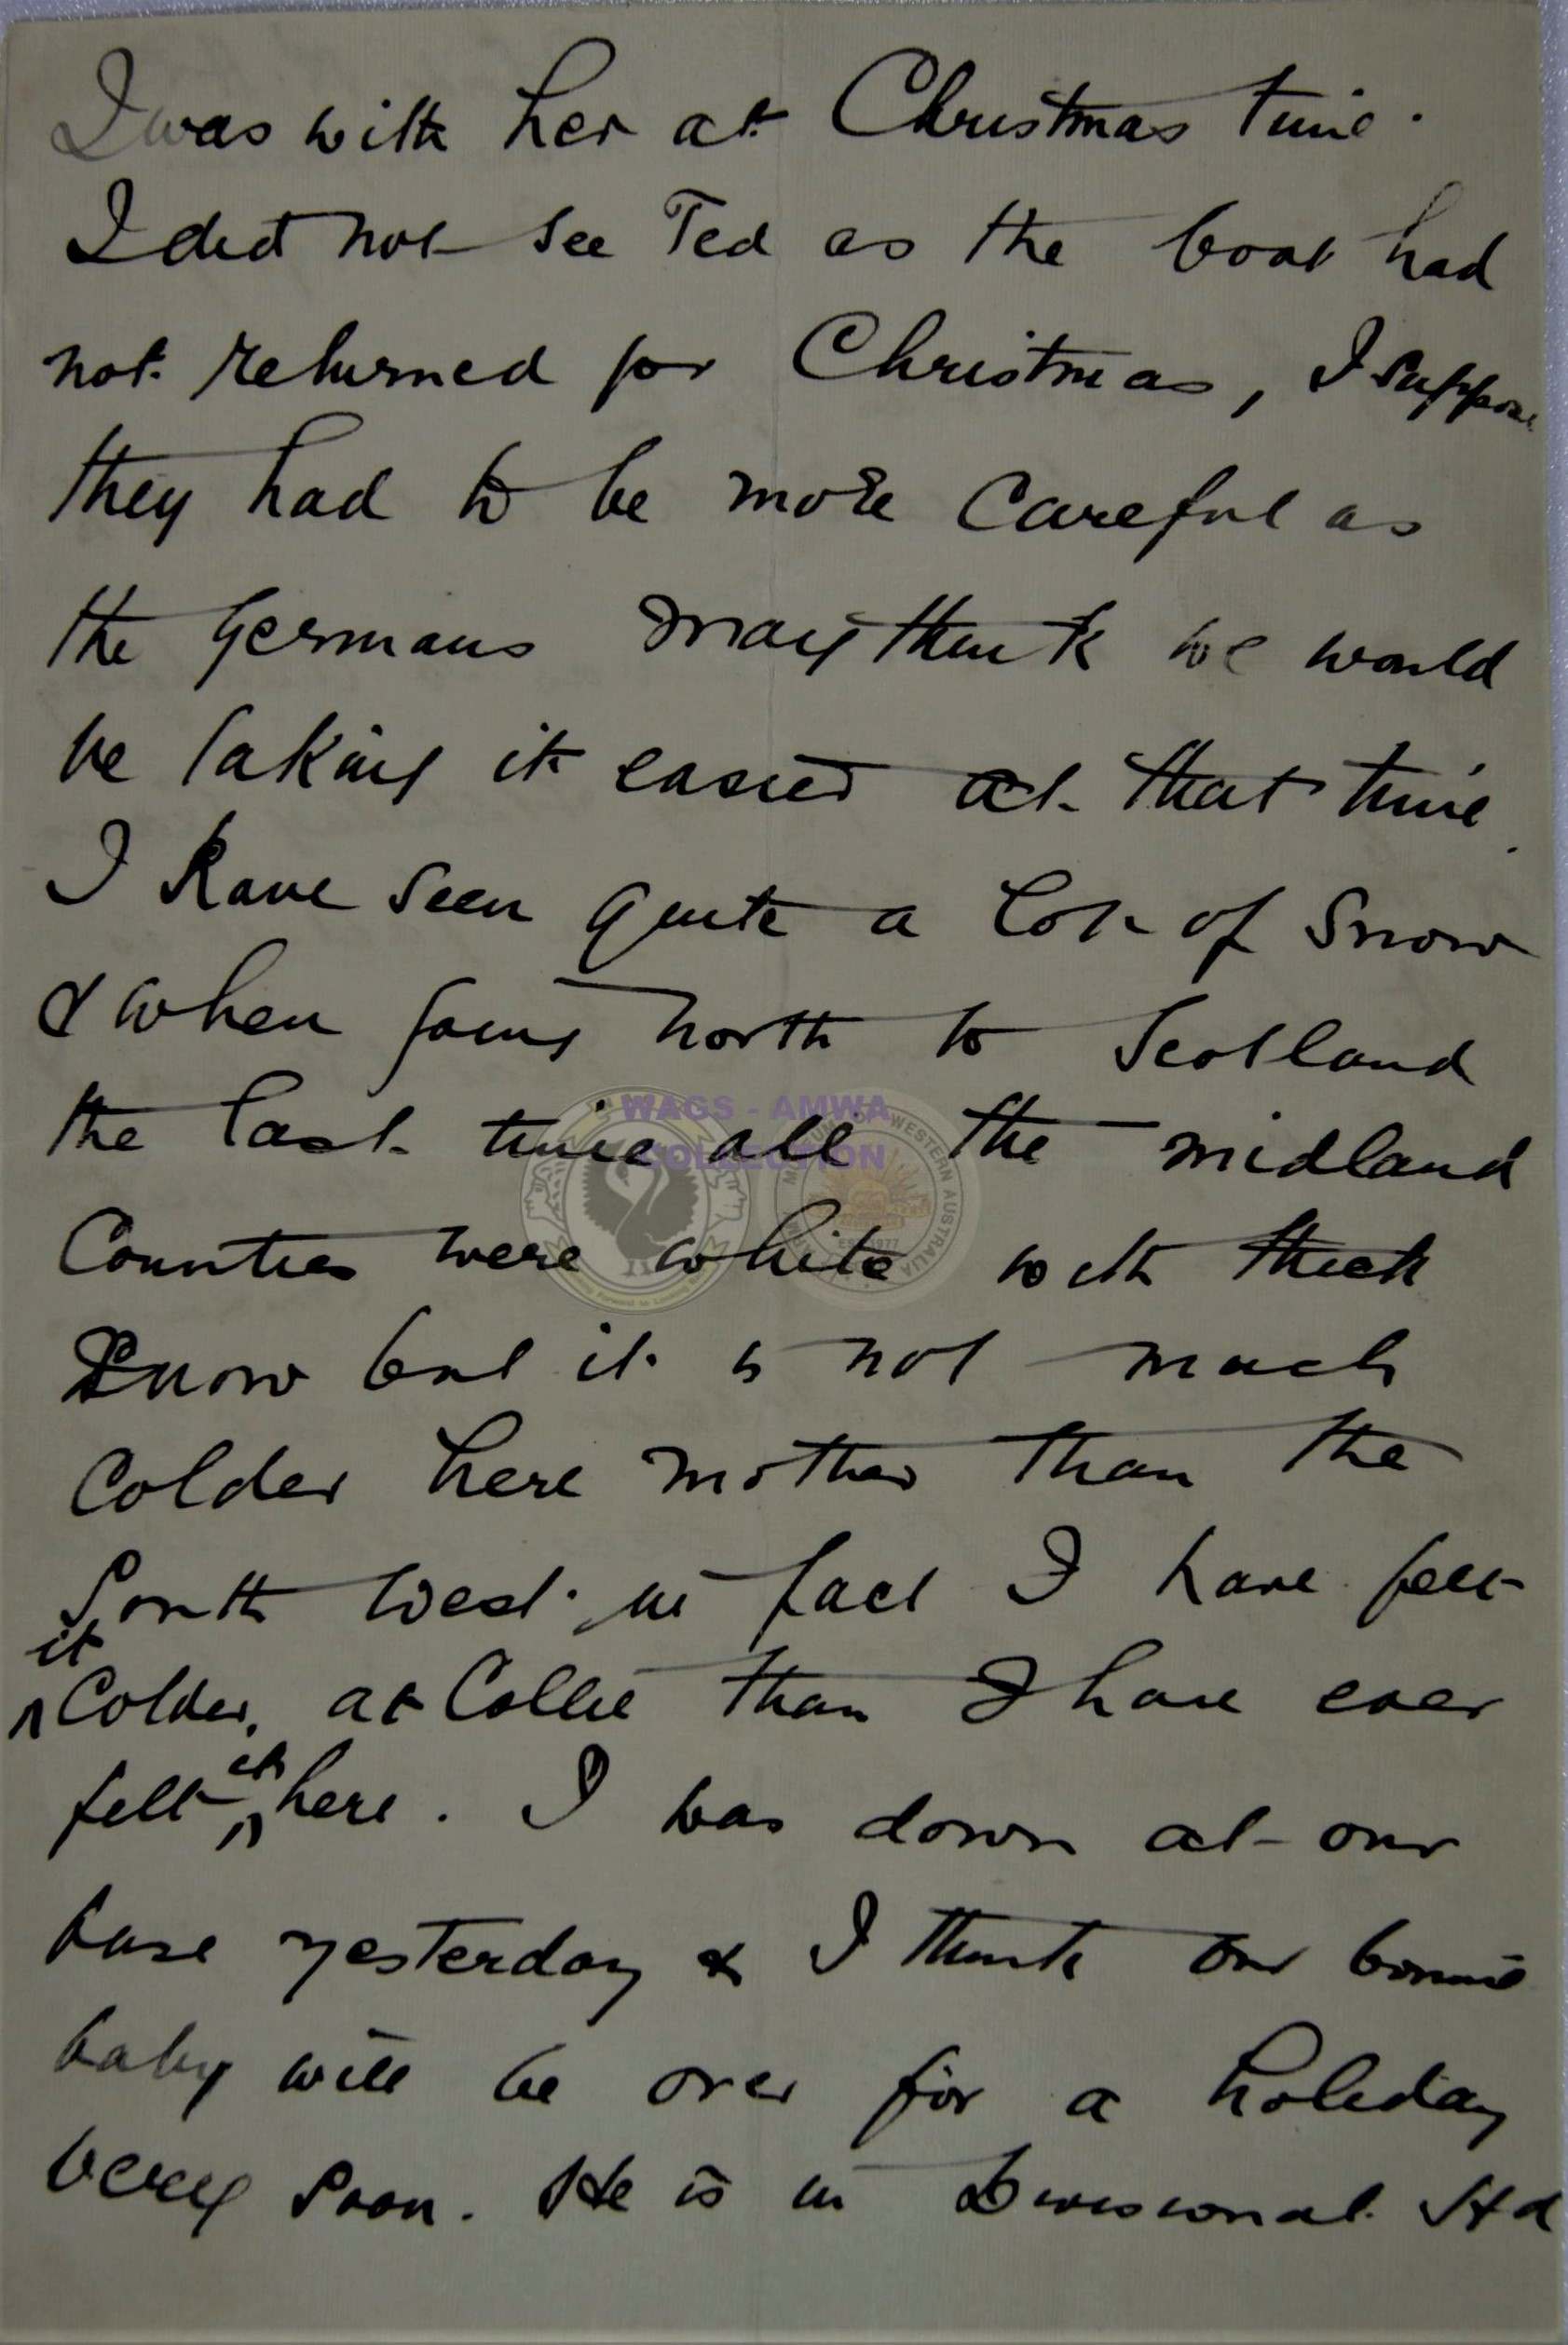 I was with her at Christmas time.
I did not see Ted as the boat had
not returned for Christmas, I suppose
they had to be more careful as
the Germans may think we would
be taking it easier at that time.
I have seen quite a lot of snow
& when going north to Scotland
the last time all the midland
Counties were white with thick
snow but it is not much
colder here mother than the
South West. in fact I have felt
it
colder, at Collie than I have ever
felt it here. I was down at our
base yesterday & I think our bonnie
baby will be over for a holiday
very soon. He is in Divisional Hd
WAGS - AMWA
COLLECTION
WESTERN AUSTRALIA